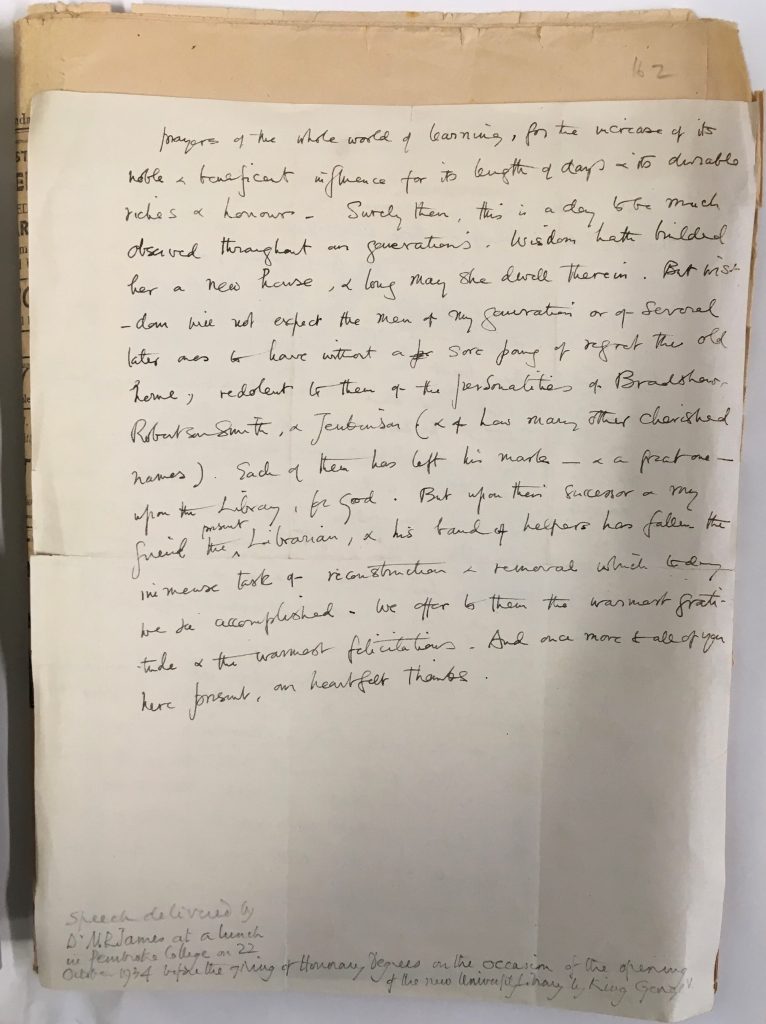 162
prayers of the whole world of learning, for the increase of its
noble & beneficent influence for its length of days & its durable
riches & honours – Surely then, this is a day to be much
observed throughout our generations. Wisdom hath builded
her a new house, & long may she dwell therein. But wis-
-dom will not expect the men of my generation or of several
later ones to leave without a sore pang of regret the old
home, redolent to them of the personalities of Bradshaw,
Robertson Smith, & Jenkinson (& of how many other cherished
names). Each of them has left his mark – & a great one –
upon the Library, for good. But upon their successor & my
friend the present Librarian, & his band of helpers has fallen the
immense task of reconstruction & removal which today
we see accomplished. We offer to them the warmest grati-
-tude & the warmest felicitations. And once more to all of you
here present, our heartfelt thanks.
Speech delivered by
Dr M.R. James at a lunch
in Pembroke College on 22
October 1934 before the giving of Honorary Degrees on the occasion of the opening
of the new University Library by King George V.